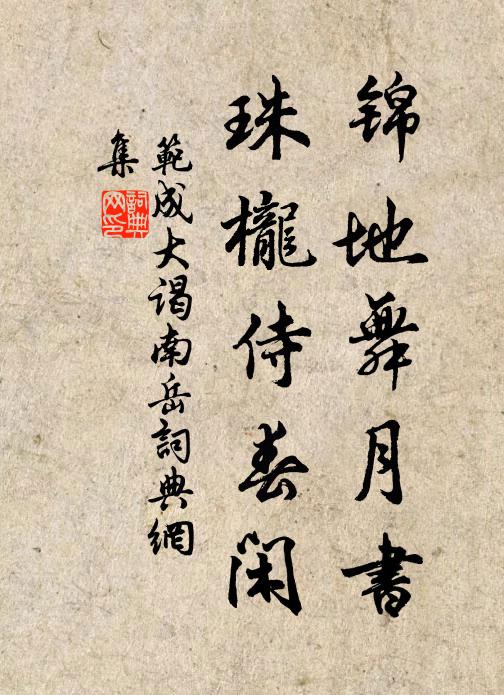 锦地舞月書
珠櫳侍春閑
範成大謁南岳詞典網
集
詞典
网印